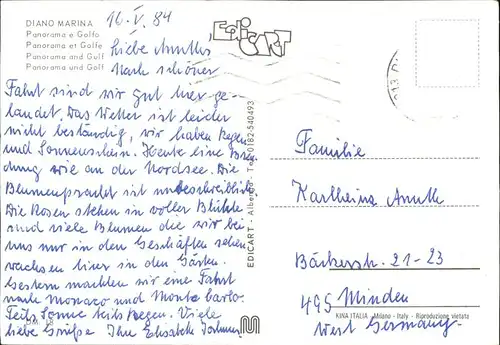 DIANO MARINA
Panorama e Golfo
Panorama et Golfe
Panorama and Gulf
Panorama und Golf
16. V. 84
EdiCART
Liebe
Nach schöner
Fahrt sind wir gut hier ge-
landet. Das Wetter ist leider
nicht beständig, wir haben Regen
und Sonnenschein. Heute eine Bran
dung wie an der Nordsee. Die
Blumenpracht ist unbeschreiblich.
Die Rosen stehen in voller Blüte
und viele Blumen die wir bei
uns nur in den Geschäften sehen
wachsen hier in den Gärten.
Gestern machten wir eine Fahrt
nach Monaco und Monte Carlo.
Teils Sonne teils Regen. Viele
liebe Grüße Ihre Elisabeth
EDICART - Albenga - Tel. 0182-540493
Familie
Karlheinz
Bäckerstr. 21-23
495 Minden
West Germany
KINA ITALIA - Milano - Italy - Riproduzione vietata